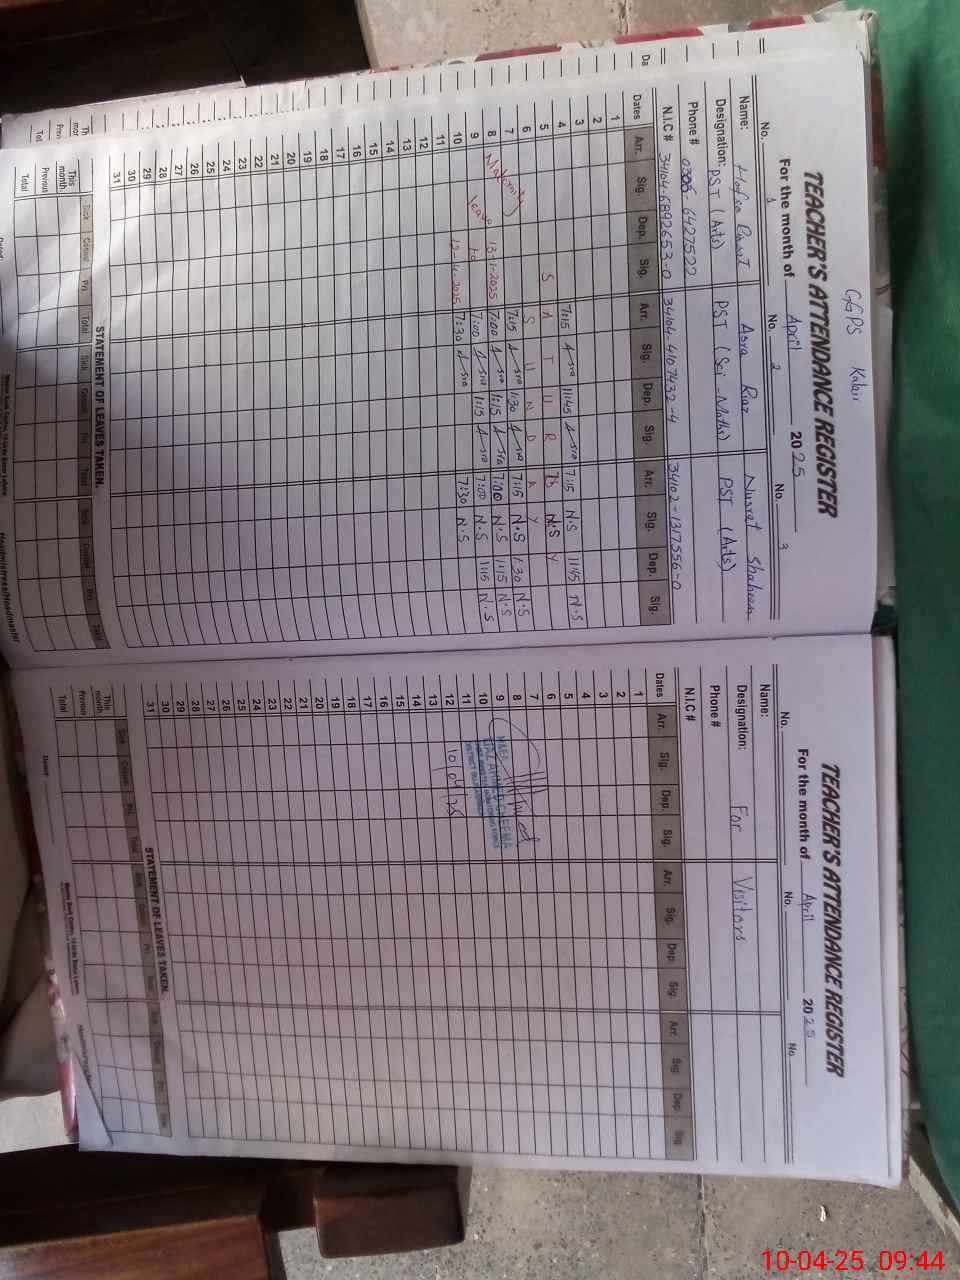 GGPS Kalair
TEACHER'S ATTENDANCE REGISTER
For the month of April 2025
No. 1 No. 2 No. 3
Name: Asra Riaz Nusrat Shaheen
Designation: PST (Arts) PST (Sci-Maths) PST (Arts)
Phone # 6427522
N.I.C # 34104-6892653-0 34104-4107432-4 34102-1317556-0
Dates Arr. Sig. Dep. Sig. Arr. Sig. Dep. Sig. Arr. Sig. Dep. Sig.
1
2
3
4 7:15 Asra 11:45 Asra 7:15 N.S 11:45 N.S
5 S A T U R D A Y
6 S U N D A Y
7 Maternity 7:15 Asra 1:30 Asra 7:15 N.S 1:30 N.S
8 13-1-2025 7:00 Asra 1:15 Asra 7:00 N.S 1:15 N.S
9 leave to 7:00 Asra 1:15 Asra 7:00 N.S 1:15 N.S
10 12-4-2025 7:30 Asra 7:30 N.S
11
12
13
14
15
16
17
18
19
20
21
22
23
24
25
26
27
28
29
30
31
STATEMENT OF LEAVES TAKEN.
Sick Casual Pri. Total Sick Casual Pri. Total Sick Casual Pri. Total
This month
Previous
Total
Headmistress/Headmaster
TEACHER'S ATTENDANCE REGISTER
For the month of April 2025
No. No. No.
Name:
Designation: For Visitors
Phone #
N.I.C #
Dates Arr. Sig. Dep. Sig. Arr. Sig. Dep. Sig. Arr. Sig. Dep. Sig.
1
2
3
4
5
6
7
8
9
10
11
12 10/04/25
13
14
15
16
17
18
19
20
21
22
23
24
25
26
27
28
29
30
31
STATEMENT OF LEAVES TAKEN.
Sick Casual Pri. Total Sick Casual Pri. Total Sick Casual Pri.
This month
Previous
Total
10-04-25 09:44